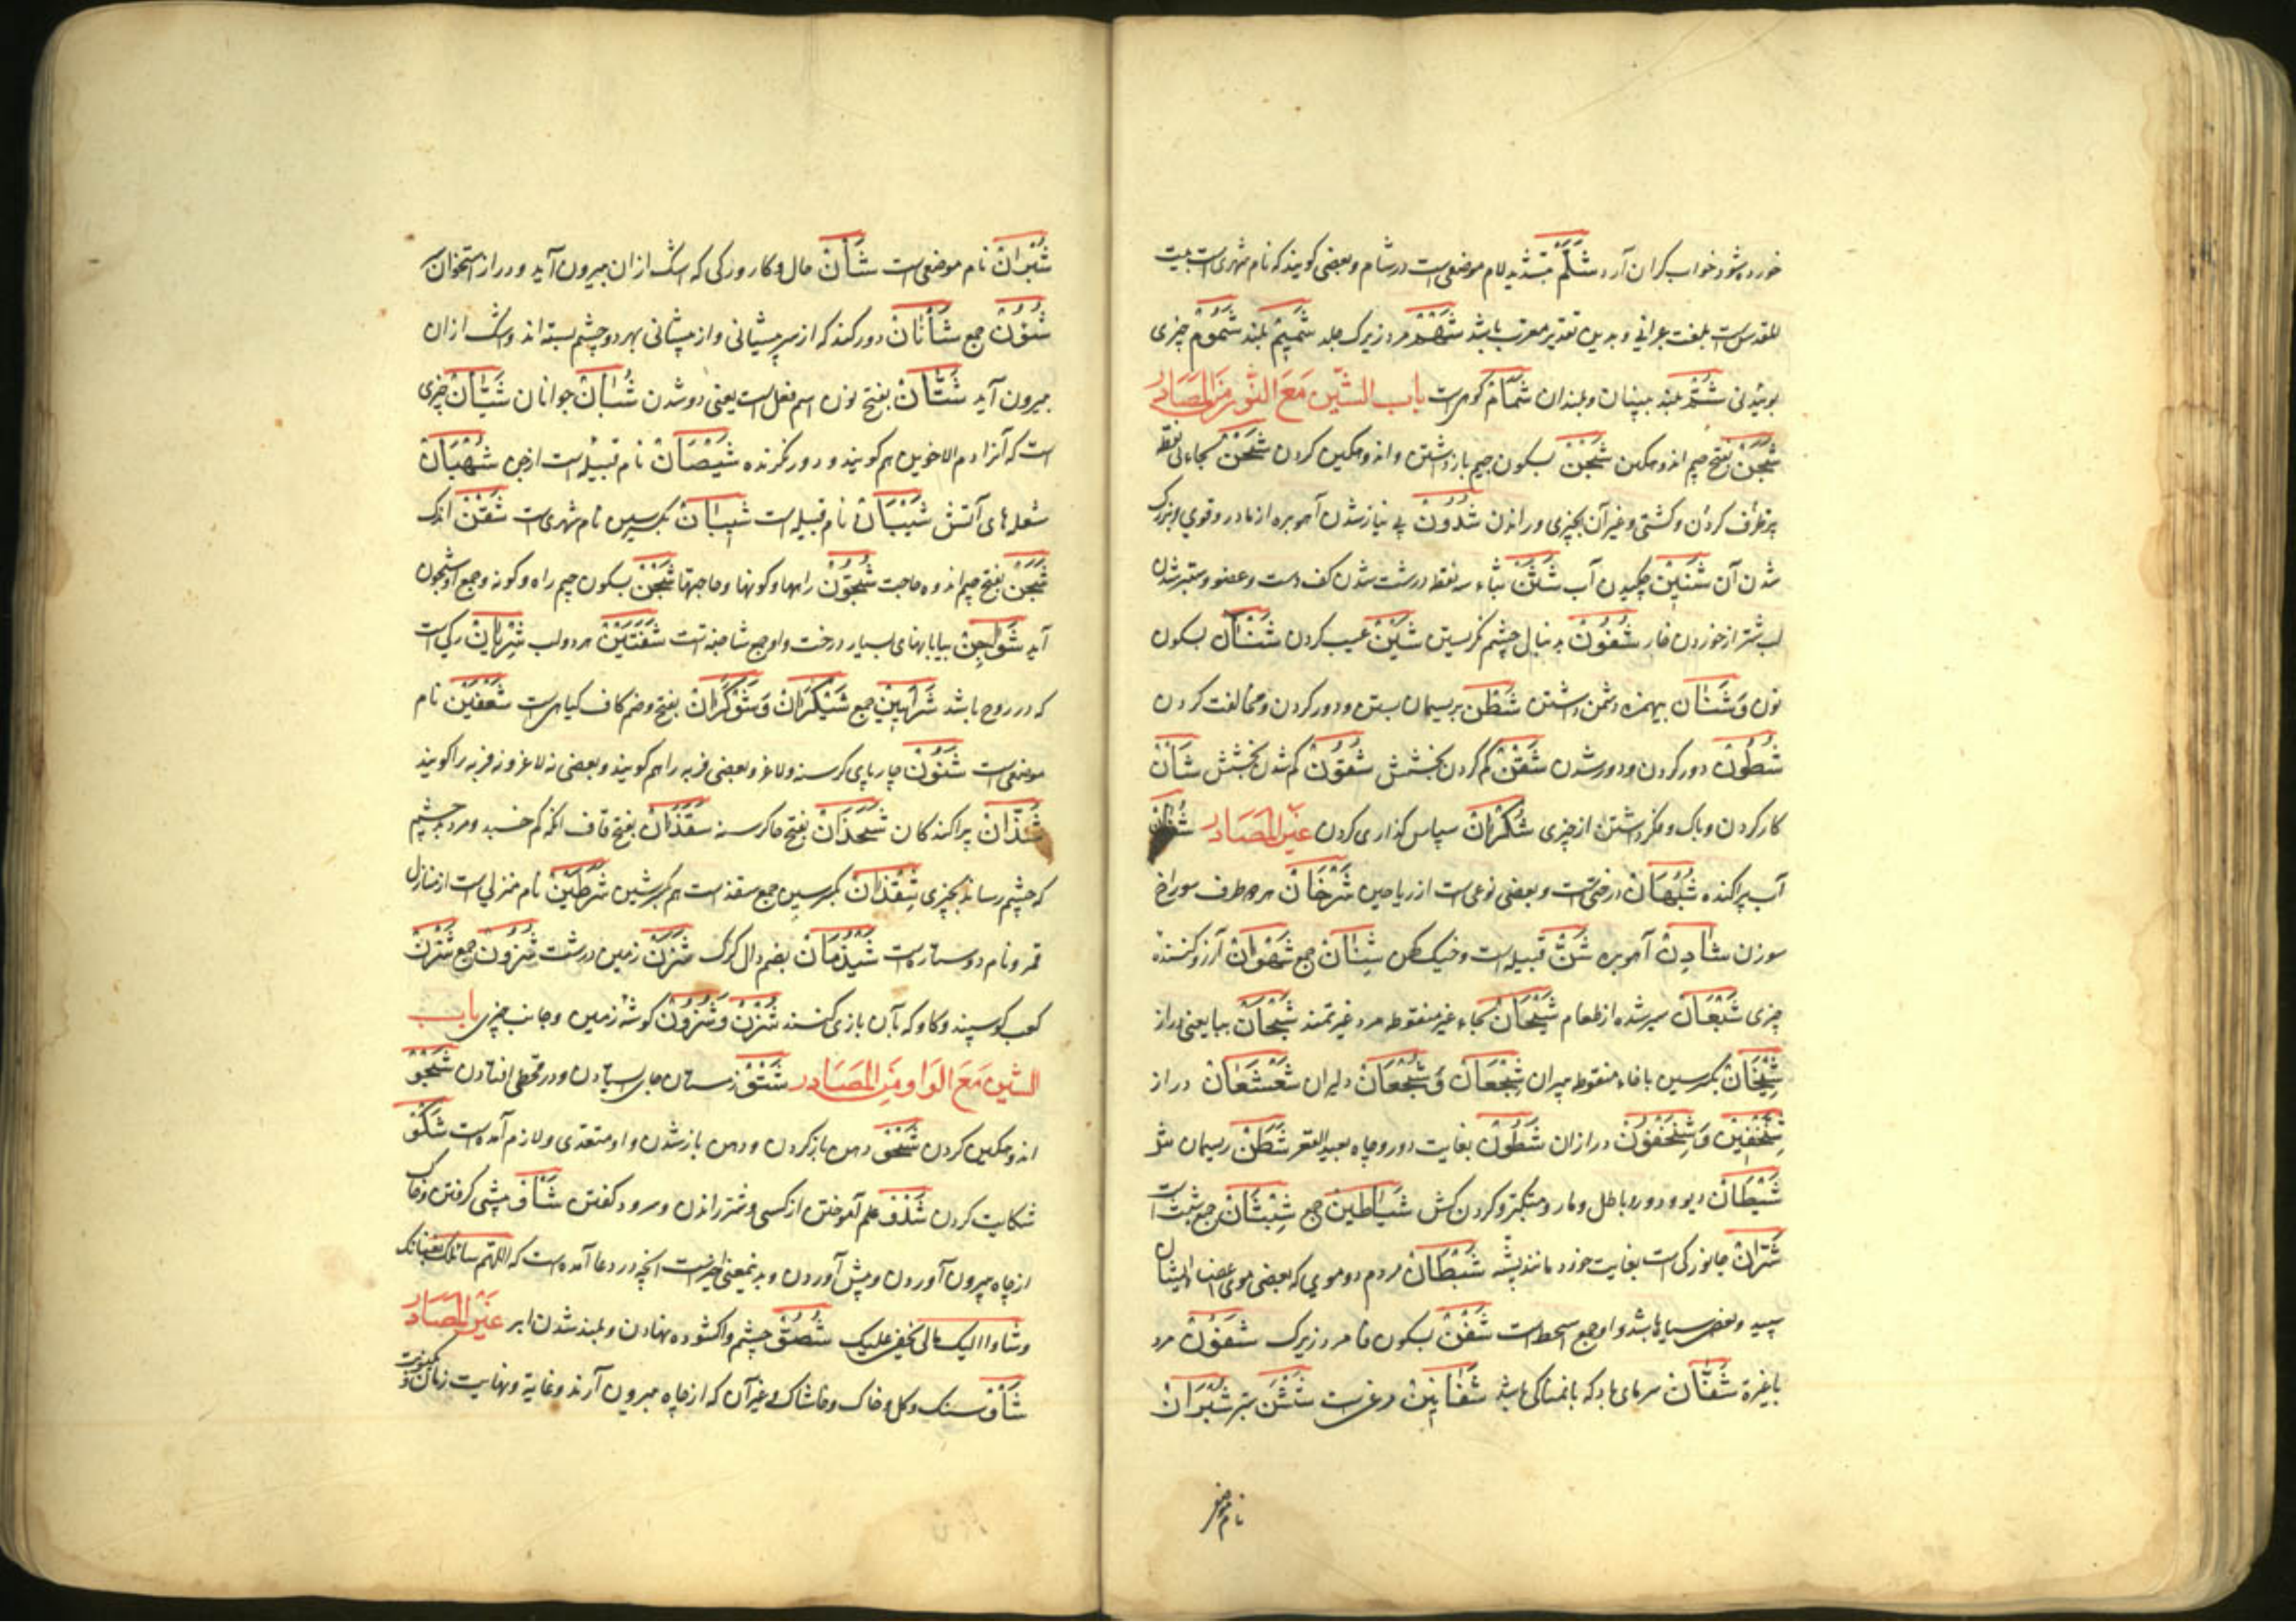 خورده شود خواب گران آرد شَلَّم بتشدید لام موضعی است در شام و بعضی کویند که نام شهری است بیت
المقدس است بلغت عبرانی و بدین تقدیر معرب باشد شَهْم مرد زیرک جلد شَمِیْم بلند شَمُوْم چیزی
بوئیدنی شُمّ بلند بینیان و بلندان شَمَّام کوهی است باب الشّین مَعَ النّون مِنَ المَصَادِر
شَجَنْ بفتح جیم اندوهکین شَجْنْ بسکون جیم بازداشتن و اندوهکین کردن شَحْنْ بحاء بی نقطه
پر ظرف کردن و کشتی و غیر آن بچیزی و راندن شُدُوْنْ بی نیاز شدن آهو بره از مادر و قوی و بزرک
شدن آن شَنِیْنْ چکیدن آب شَثَنْ بثاء سه نقطه درشت شدن کف دست و عضو و سطبر شدن
لب شتر از خوردن خار شُفُوْنْ بدنبال چشم نکریستن شَیْنْ عیب کردن شَنْآن بسکون
نون وَ شَنَان بیهمزه دشمن داشتن شَطْنْ بریسمان بستن و دور کردن و مخالفت کردن
شُطُوْنْ دور کردن و دور شدن شَقْنْ کم کردن بخشش شُقُوْنْ کم شدن بخشش شَأْنْ
کار کردن و باک و فکر داشتن از چیزی شُکْرَانْ سپاس کذاری کردن غَیْرِ المَصَادِر
آب پراکنده شَبُهَانْ درختی است و بعضی نوعی است از ریاحین شَرْخَانْ هر دو طرف سوراخ
سوزن شَادِنْ آهو بره شَنّ قبیله است و خیک کهن شِنَانْ جمع شَهْوَانْ آرزو کننده
چیزی شَبْعَانْ سیر شده از طعام شَیْحَانْ بحاء غیر منقوطه مرد غیرتمند
شِیْخَانْ بکسر سین با خاء منقوطه پیران شِجْعَانْ وَ شُجْعَانْ دلیران شَعْشَعَانْ دراز
درازان شَطُوْنْ بغایت دور و چاه بعید القعر شَطَنْ ریسمان
شَیْطَانْ دیو و دور و باطل و مار و متکبر و کردن کش شَیَاطِیْن جمع شِبْثَانْ جمع شبث است
جانورکی است بغایت خورد مانند پشه شُمْطَانْ مردم دو موی که بعضی موی اعضاء ایشان
سپید و بعضی سیاه باشد و او جمع اشمط است شَفْنْ بسکون فا مرد زیرک شَفُوْنْ مرد
با غیرة شَفَّانْ سرمای باد که با نمناکی باشد شَفَانِیْن مرغی است شُبْرَانْ
نام موضعی
شُبْرَانْ نام موضعی است شَأْنْ حال و کار و رکی که اشک از ان بیرون آید و درز استخوان سر
شُئُوْنْ جمع شَأْنَانْ دو رک‌اند که از سر پیشانی و از پیشانی بهر دو چشم بسته اند و اشک از ان
بیرون آید شَتَّانْ بفتح نون اسم فعل است یعنی دور شدن شُبَّانْ جوانان شَیَّانْ چیزی
است که آنرا دم الاخوین هم کویند و دور نکرنده شَیْصَانْ نام قبیله است از جن شُهْبَانْ
شعله های آتش شَیْبَانْ نام قبیله است شِیْبَانْ بکسر سین نام شهری است شَقْنْ اندک
شَجَنْ بفتح جیم اندوه و حاجت شُجُوْنْ راهها و کونها و حاجتها شَجْنْ بسکون جیم راه و کونه و جمع او شجون
آید شَوَاجِنْ بیابانهای بسیار درخت و او جمع شاجنه است شَفَتَیْنْ هر دو لب شِرْیَانْ رکی است
که در روح باشد شَرَایِیْنْ جمع شَیْکَرَانْ وَ شَوْکَرَانْ بفتح و ضم کاف کیاهی است نام
موضعی است شَنُوْنْ چارپای کرسنه و لاغر و بعضی فربه را هم کویند و بعضی نه لاغر و نه فربه را کویند
شُذَّانْ پراکندکان شَحْذَانْ بفتح حا کرسنه شَقَذَانْ بفتح قاف انکه کم خسبد و مرد بد چشم
که چشم رساند بچیزی شِقْذَانْ بکسر سین جمع شقذ است هم بکسر شین شَرَطَیْنْ نام منزلی است از منازل
قمر و نام دو ستاره است شَیْذُمَانْ بضم دال کرک شَزَنْ زمین درشت شُزُوْنْ جمع شُزْنْ
کعب کوسپند و کاو که بآن بازی کنند شُزْنْ وَ شُزُوْنْ کوشهٔ زمین و جانب چیزی باب
الشین مَعَ الوَاو مِنَ المَصَادِر شَتْوْ زمستان جای ایستادن و در قحطی افتادن شَجْوْ
اندوهکین کردن شَحْوْ دهن باز کردن و دهن باز شدن و او متعدی و لازم آمده است شَکْوْ
شکایت کردن شَدْوْ علم آموختن از کسی و شتر راندن و سرود کفتن شَأْوْ پیشی کرفتن و خاک
از چاه بیرون آوردن و پیش آوردن و بدین معنی اخیر است انچه در دعا آمده است که اللهم
شُصُوّ چشم واکشوده بهادن و بلند شدن ابر غَیْرِ المَصَادِر
شَأْوْ سنک و کل و خاک و خاشاک و غیر آن که از چاه بیرون آرند و غایة و نهایت